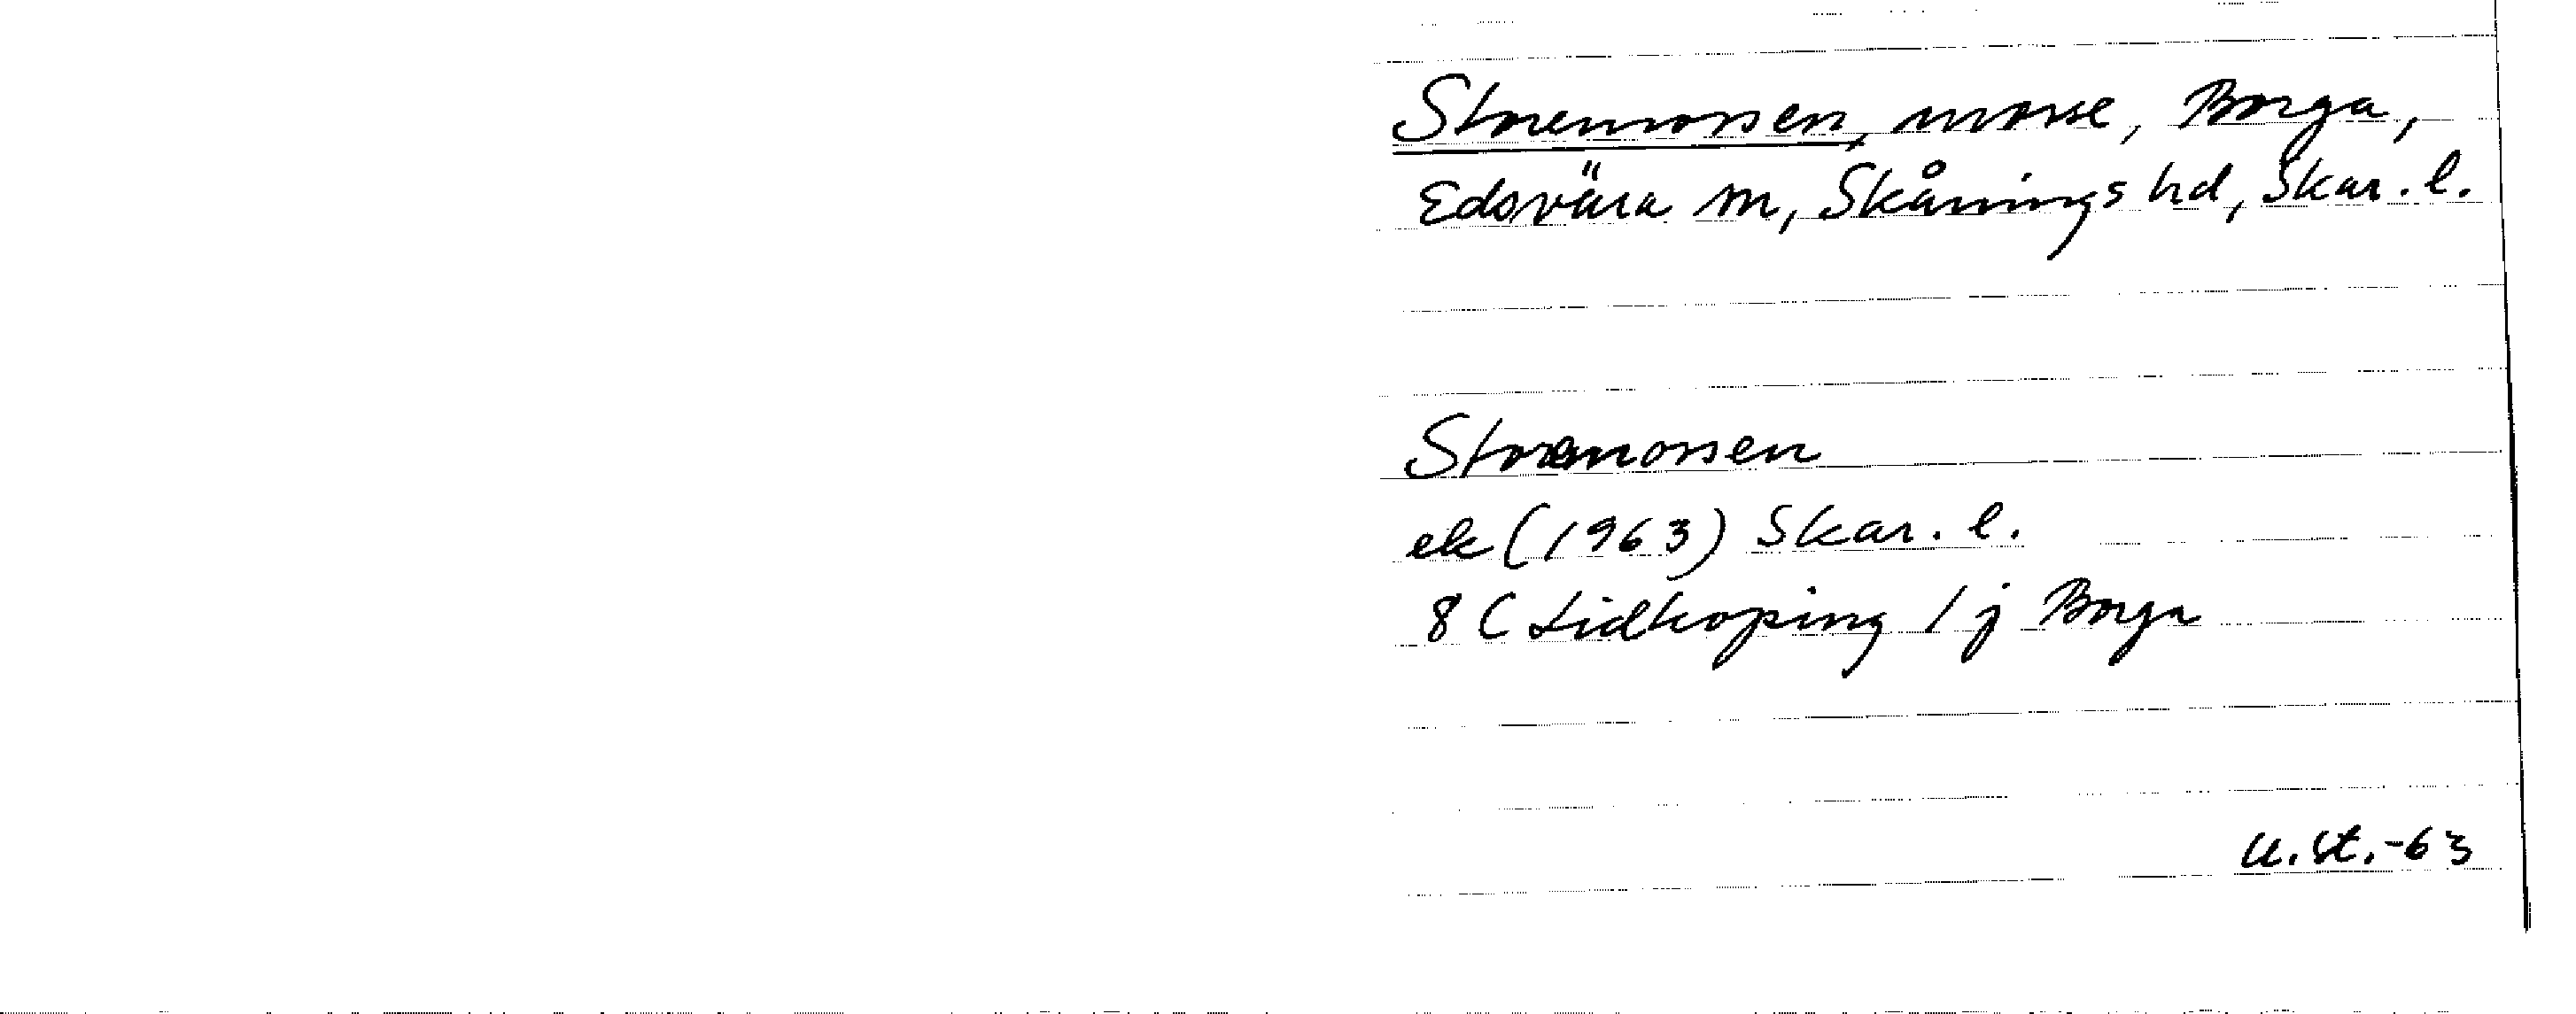 Storemossen, mosse, Borga,
Edsvära sn, Skånings hd, Skar. l.
Storemossen
ek (1963) Skar. l.
8 C Lidköping 1 j Borga
U.St.-63